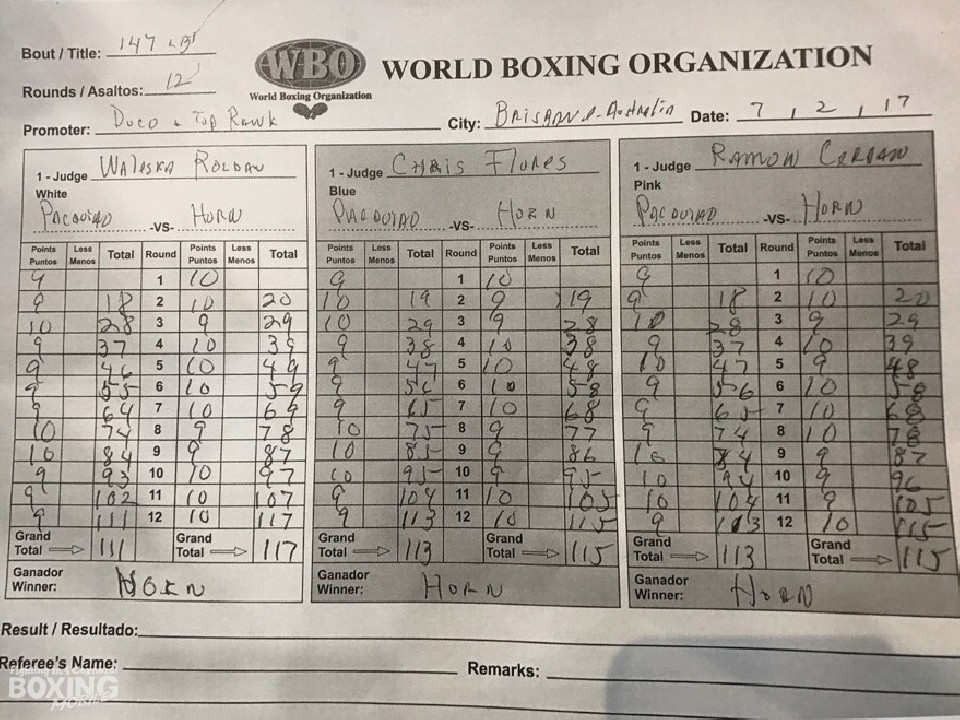 Bout / Title: 147 LBS
WBO
World Boxing Organization
WORLD BOXING ORGANIZATION
Rounds / Asaltos: 12
Promoter: Duco & Top Rank City: Brisbane-Australia Date: 7, 2, 17
1 - Judge Waleska Roldan
White
Pacquiao -VS- Horn
Points Puntos Less Menos Total Round Points Puntos Less Menos Total
9 1 10
9 18 2 10 20
10 28 3 9 29
9 37 4 10 39
9 46 5 10 49
9 55 6 10 59
9 64 7 10 69
10 74 8 9 78
10 84 9 9 87
9 93 10 10 97
9 102 11 10 107
9 111 12 10 117
Grand Total 111 Grand Total 117
Ganador
Winner: HORN
1 - Judge Chris Flores
Blue
Pacquiao -VS- Horn
Points Puntos Less Menos Total Round Points Puntos Less Menos Total
9 1 10
10 19 2 9 19
10 29 3 9 28
9 38 4 10 38
9 47 5 10 48
9 56 6 10 58
9 65 7 10 68
10 75 8 9 77
10 85 9 9 86
10 95 10 9 95
9 104 11 10 105
9 113 12 10 115
Grand Total 113 Grand Total 115
Ganador
Winner: HORN
1 - Judge Ramon Cerdan
Pink
Pacquiao -VS- Horn
Points Puntos Less Menos Total Round Points Puntos Less Menos Total
9 1 10
9 18 2 10 20
10 28 3 9 29
9 37 4 10 39
10 47 5 9 48
9 56 6 10 58
9 65 7 10 68
9 74 8 10 78
10 84 9 9 87
10 94 10 9 96
10 104 11 9 105
9 113 12 10 115
Grand Total 113 Grand Total 115
Ganador
Winner: HORN
Result / Resultado:
Referee's Name: Remarks:
BOXING